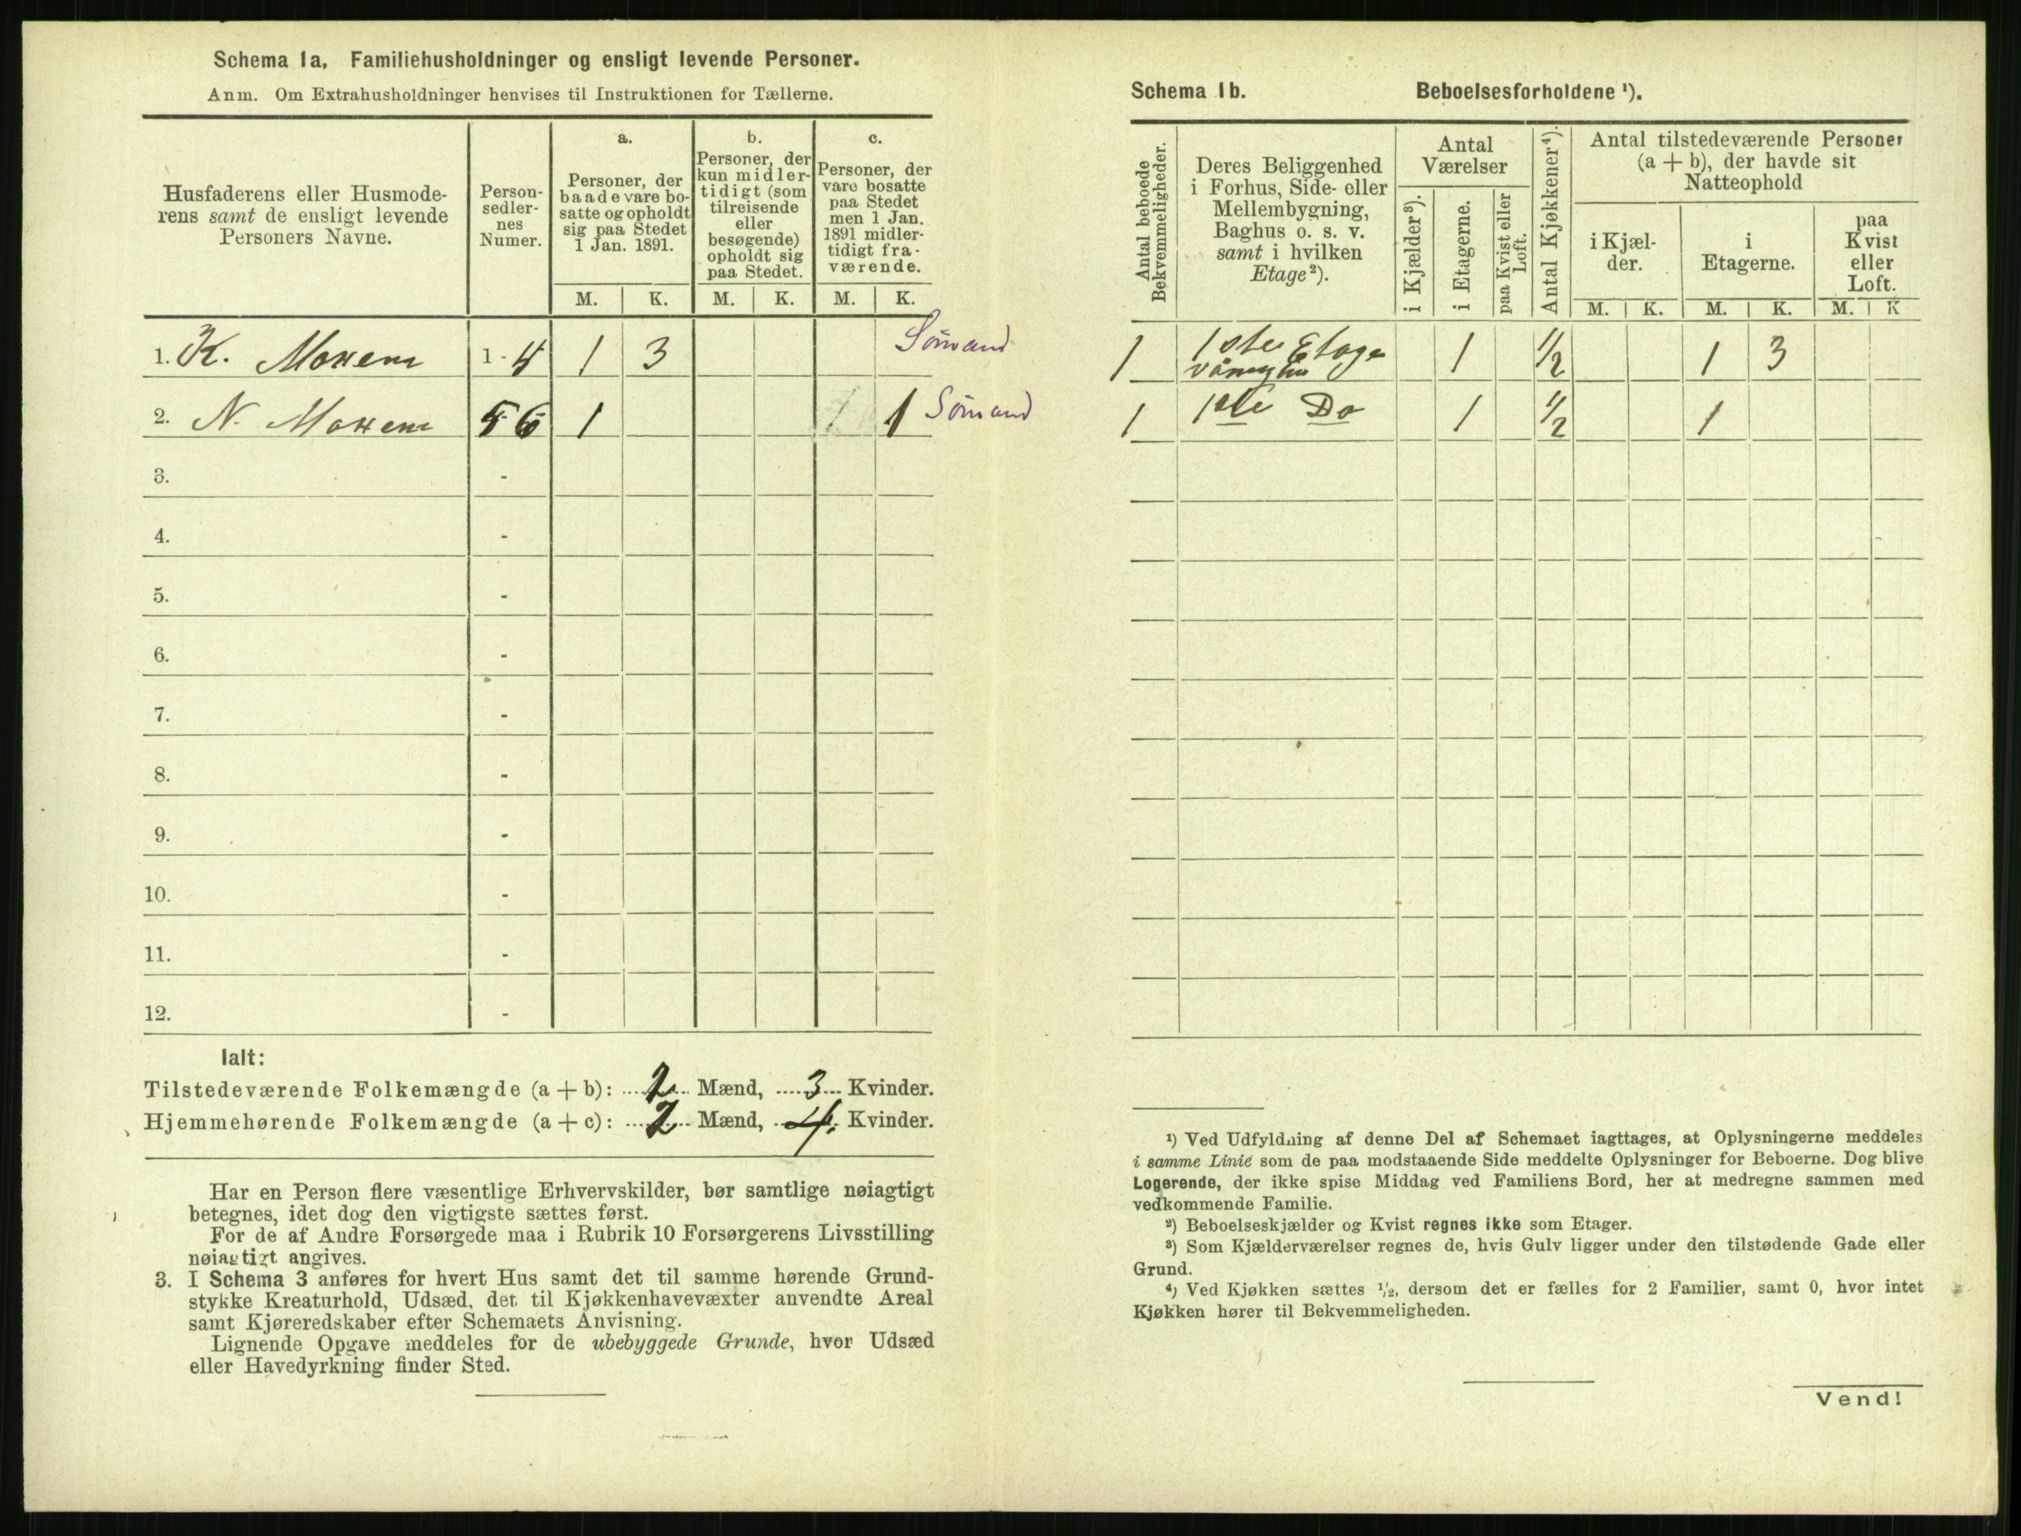 Schema 1a. Familiehusholdninger og ensligt levende Personer.
Anm. Om Extrahusholdninger henvises til Instruktionen for Tællerne.
Husfaderens eller Husmode-
rens samt de ensligt levende
Personers Navne.
Person-
sedler-
nes
Numer.
a.
Personer, der
baade vare bo-
satte og opholdt
sig paa Stedet
1 Jan. 1891.
b.
Personer, der
kun midler-
tidigt (som
tilreisende
eller
besøgende)
opholdt sig
paa Stedet.
c.
Personer, der
vare bosatte
paa Stedet
men 1 Jan.
1891 midler-
tidigt fra-
værende.
M. K. M. K. M. K.
1. K. 1 - 4 1 3 Sømand
2. N. 5 - 6 1 1 Sømand
3. -
4. -
5. -
6. -
7. -
8. -
9. -
10. -
11. -
12. -
Ialt:
Tilstedeværende Folkemængde (a + b): 2 Mænd, 3 Kvinder.
Hjemmehørende Folkemængde (a + c): 2 Mænd, 4. Kvinder.
Har en Person flere væsentlige Erhvervskilder, bør samtlige nøiagtigt
betegnes, idet dog den vigtigste sættes først.
For de af Andre Forsørgede maa i Rubrik 10 Forsørgerens Livsstilling
nøiagtigt angives.
3. I Schema 3 anføres for hvert Hus samt det til samme hørende Grund-
stykke Kreaturhold, Udsæd, det til Kjøkkenhavevæxter anvendte Areal
samt Kjøreredskaber efter Schemaets Anvisning.
Lignende Opgave meddeles for de ubebyggede Grunde, hvor Udsæd
eller Havedyrkning finder Sted.
Schema 1b. Beboelsesforholdene ¹).
Antal beboede
Bekvemmeligheder.
Deres Beliggenhed
i Forhus, Side- eller
Mellembygning,
Baghus o. s. v.
samt i hvilken
Etage²).
Antal
Værelser
i Kjælder³).
i Etagerne.
paa Kvist eller
Loft.
Antal Kjøkkener⁴).
Antal tilstedeværende Personer
(a + b), der havde sit
Natteophold
i Kjæl-
der.
i
Etagerne.
paa
Kvist
eller
Loft.
M. K. M. K. M. K
1 1ste Etage 1 1/2 1 3
1 1ste Do 1 1/2 1
¹) Ved Udfyldning af denne Del af Schemaet iagttages, at Oplysningerne meddeles
i samme Linie som de paa modstaaende Side meddelte Oplysninger for Beboerne. Dog blive
Logerende, der ikke spise Middag ved Familiens Bord, her at medregne sammen med
vedkommende Familie.
²) Beboelseskjælder og Kvist regnes ikke som Etager.
³) Som Kjælderværelser regnes de, hvis Gulv ligger under den tilstødende Gade eller
Grund.
⁴) Ved Kjøkken sættes 1/2, dersom det er fælles for 2 Familier, samt 0, hvor intet
Kjøkken hører til Bekvemmeligheden.
Vend!